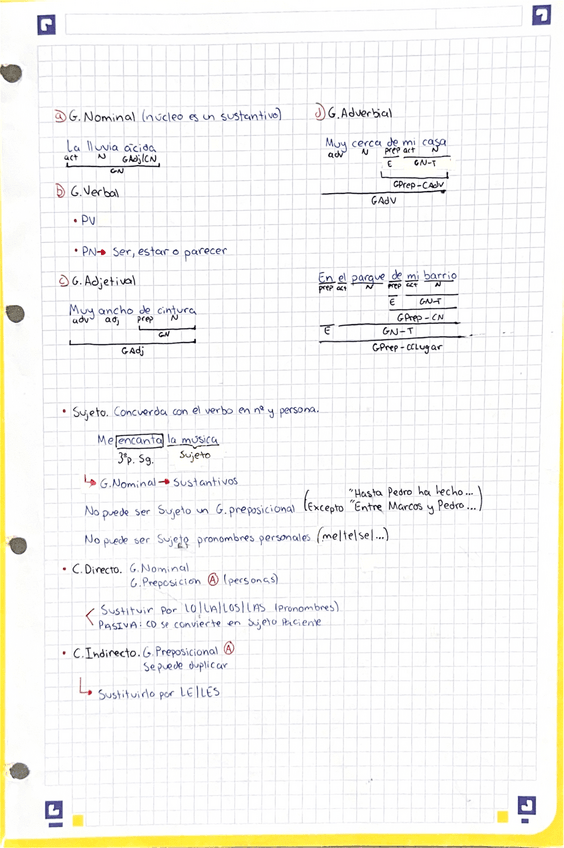 a) G. Nominal (núcleo es un sustantivo)
La lluvia ácida
act N GAdj/CN
GN
b) G. Verbal
• PV
• PN → Ser, estar o parecer
c) G. Adjetival
Muy ancho de cintura
adv adj prep N
GN
GAdj
d) G. Adverbial
Muy cerca de mi casa
adv N prep act N
E GN-T
GPrep-CAdv
GAdv
En el parque de mi barrio
prep act N prep act N
E GN-T
GPrep-CN
E GN-T
GPrep-CCLugar
• Sujeto. Concuerda con el verbo en nº y persona.
Me encanta la música
3ªp. Sg. Sujeto
↳ G. Nominal → Sustantivos
No puede ser Sujeto un G. preposicional (Excepto "Hasta Pedro ha hecho... "Entre Marcos y Pedro...)
No puede ser Sujeto pronombres personales (me/te/se/...)
• C. Directo. G. Nominal
G. Preposición A (personas)
Sustituir por LO/LA/LOS/LAS (pronombres)
PASIVA: CD se convierte en Sujeto Paciente
• C. Indirecto. G. Preposicional A
Se puede duplicar
↳ Sustituirlo por LE/LES